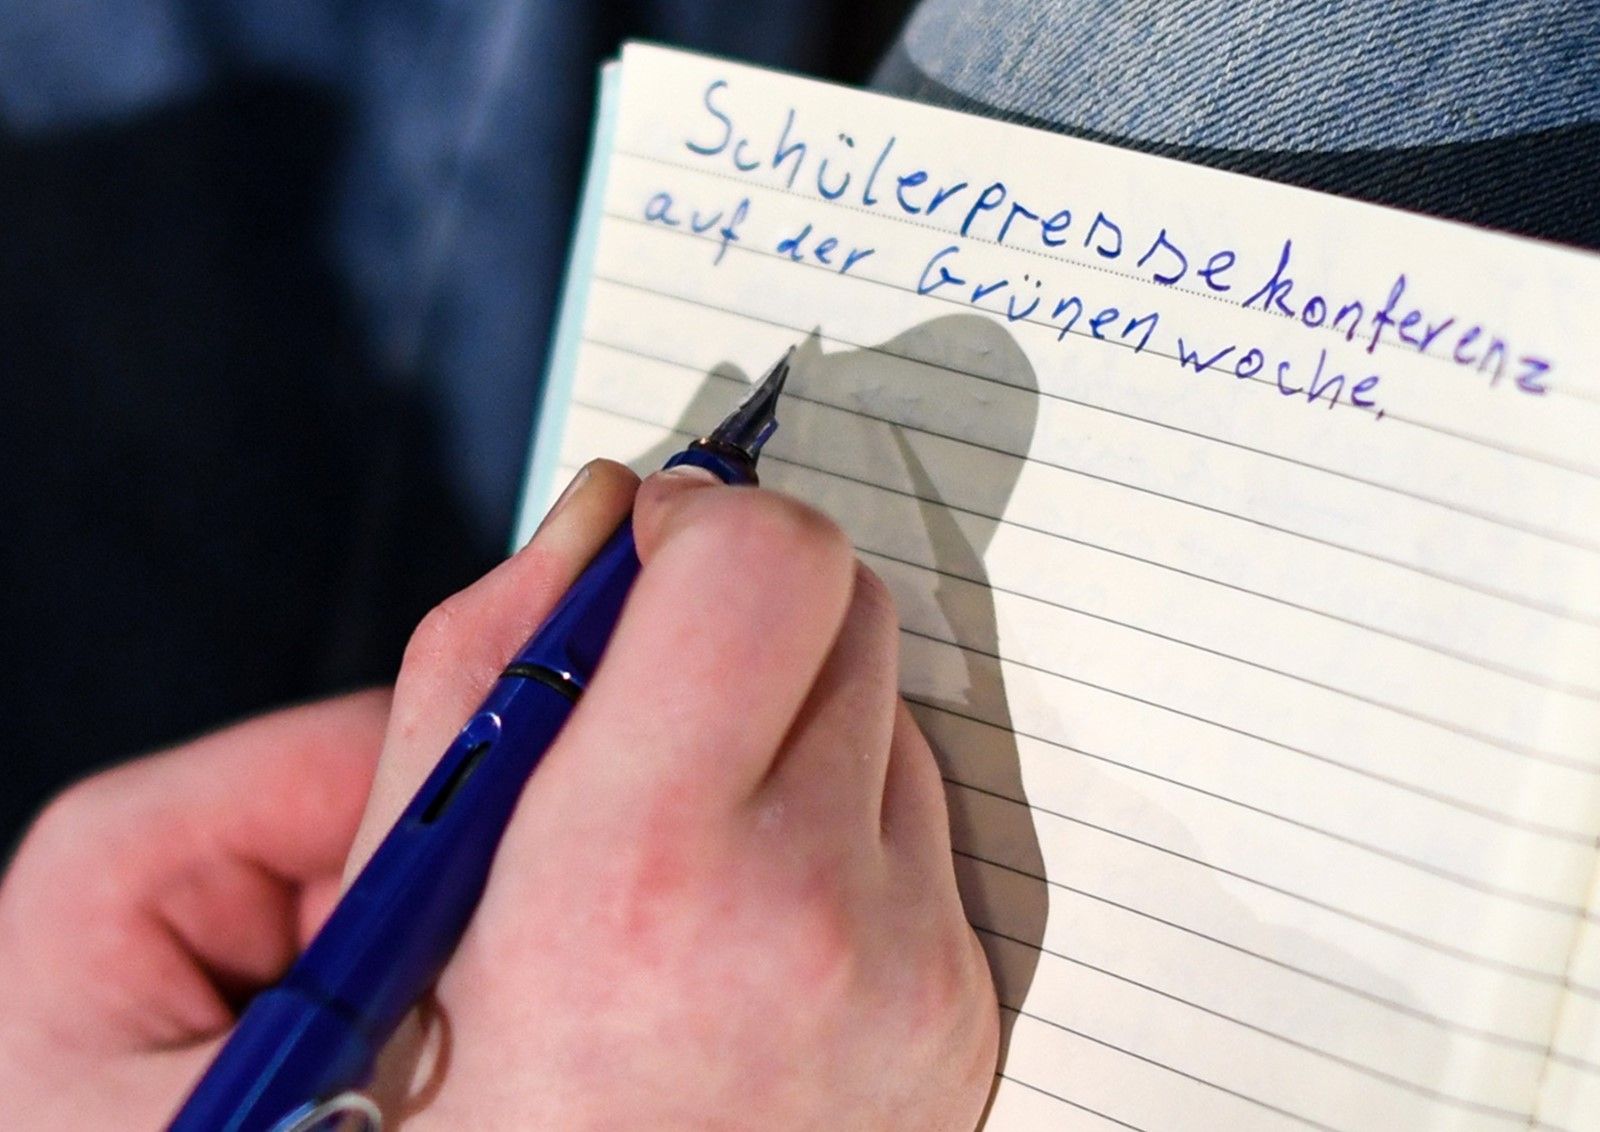 Schülerpressekonferenz
auf der Grünen Woche.